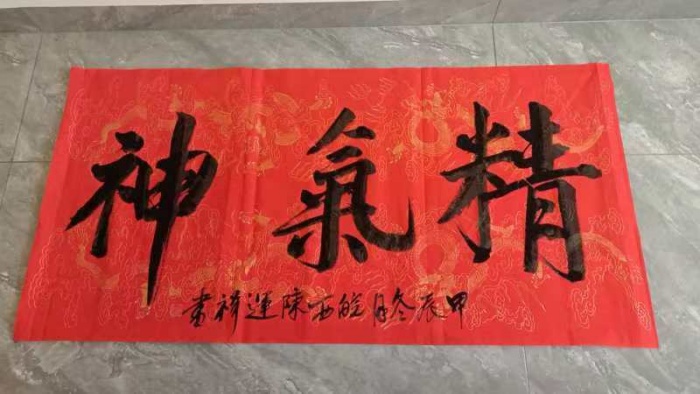 精氣神
甲辰冬月皖西陳運祥書